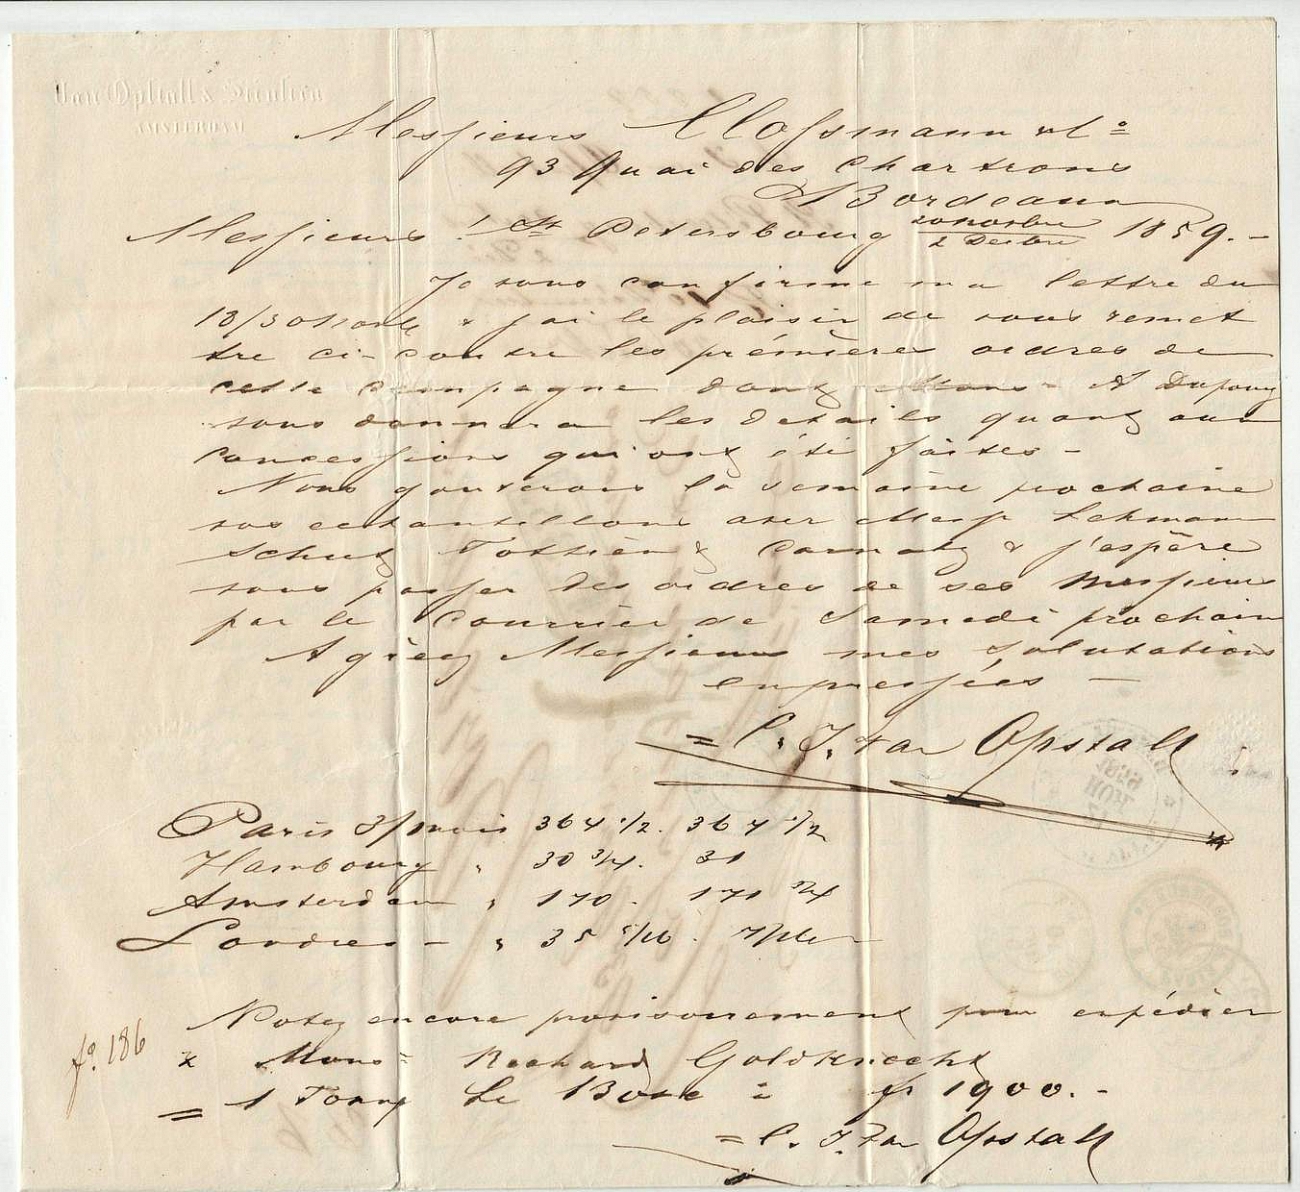 Van Opstall &
AMSTERDAM
Messieurs Clossmann & Co
93 Quai des Chartrons
à Bordeaux
Messieurs! St Petersbourg 20 novbre / 2 Decbre 1859.-
Je vous confirme ma lettre du
18/30 novbre & j'ai le plaisir de vous remet
tre ci-contre les prémières ordres de
cette campagne dont Mons A Dupouy
vous donnera les details quant aux
concessions qui ont été faites -
Nous gouterons la semaine prochaine
vos echantillons avec Mess Lehmann
Schutz & & j'espère
vous passer des ordres de ses Messieurs
par le Courrièr de Samedi prochain
Agréez Messieurs mes salutations
empressées -
= C. J. Van Opstall
Paris 3/mois 364 1/2. 367 1/2
Hambourg " 30 3/4. 31
Amsterdam " 170. 171 3/4
Londres - " 35 5/16.
Notez encore provisoirement pour expédier
x Mons Rechard Goldknecht
= 1 Tonn Le Bosc à fr 1900.-
= C. J. Van Opstall
fo. 186